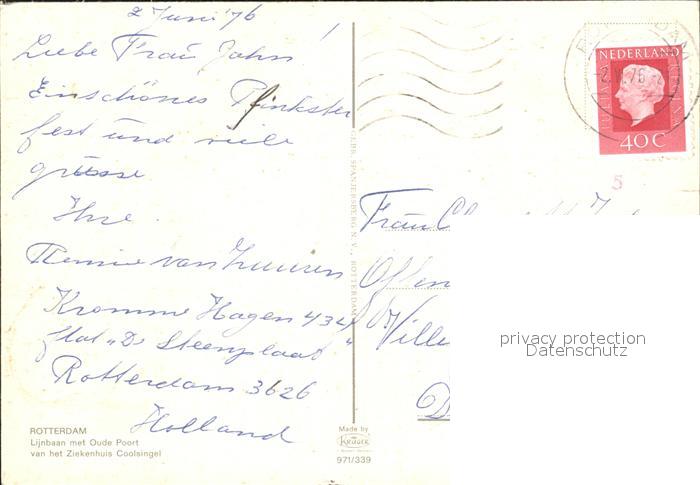 2 Juni '76
Liebe Frau John !
Ein schönes Pfinkster
fest und viele
grüsse
Ihre
van
Kromme Hagen 434
flat "De Steenplaat"
Rotterdam 3626
Holland
ROTTERDAM
Lijnbaan met Oude Poort
van het Ziekenhuis Coolsingel
GEBR. SPANJERSBERG N.V., ROTTERDAM
Made by
KRÜGER
971/339
NEDERLAND
40 C
5
Frau
Offen
Ville
D
privacy protection
Datenschutz